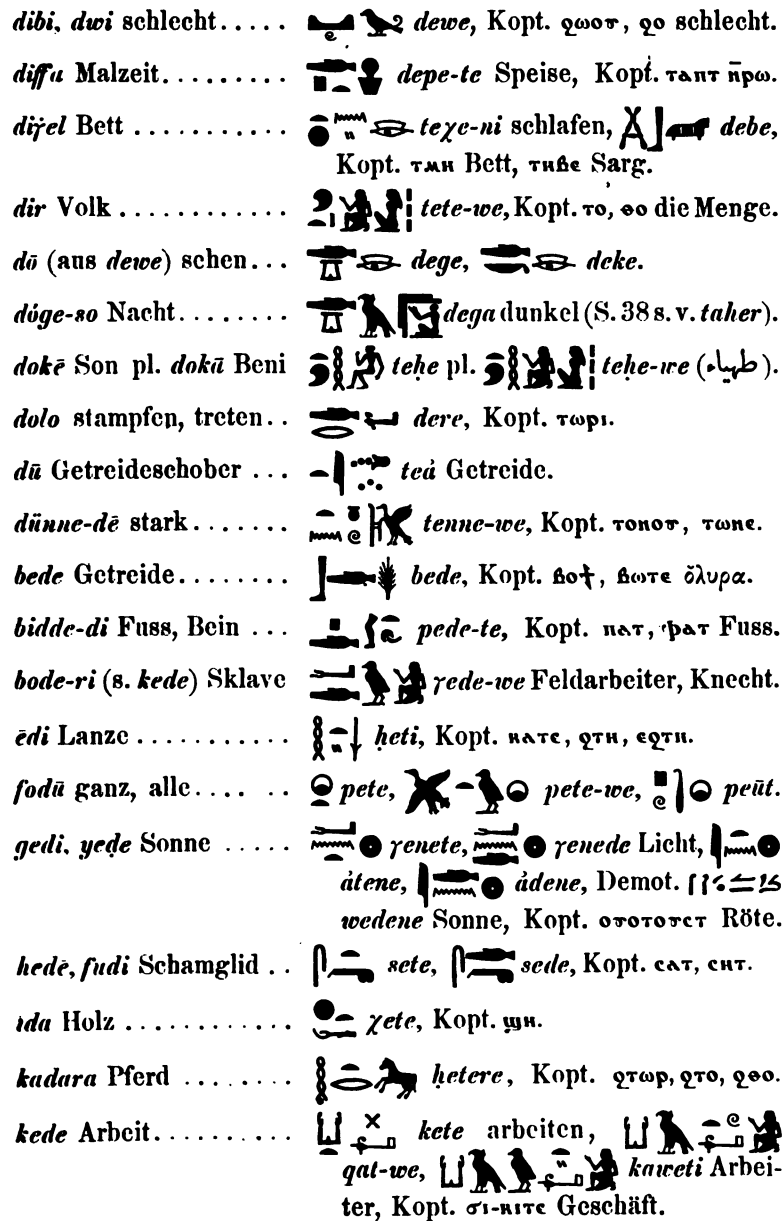 dibi, dwi schlecht..... dewe, Kopt. ϩⲱⲟⲩ, ϩⲟ schlecht.
diffu Malzeit......... depe-te Speise, Kopt. ⲧⲁⲡⲧ ⲛ̄ⲣⲱ.
Bett ........... teχe-ni schlafen, debe,
Kopt. ⲧⲙⲏ Bett, ⲧⲏⲃⲉ Sarg.
dir Volk ............ tete-we, Kopt. ⲧⲟ, ⲑⲟ die Menge.
dō (aus dewe) sehen... dege, deke.
dóge-so Nacht........ dega dunkel (S. 38 s. v. taher).
dokē Son pl. dokū Beni teḥe pl. teḥe-we
dolo stampfen, treten.. dere, Kopt. ⲧⲱⲣⲓ.
dū Getreideschober ... teȧ Getreide.
dünne-dē stark....... tenne-we, Kopt. ⲧⲟⲛⲟⲩ, ⲧⲱⲛⲉ.
bede Getreide........ bede, Kopt. ⲃⲟϯ, ⲃⲱⲧⲉ ὄλυρα.
bidde-di Fuss, Bein ... pede-te, Kopt. ⲡⲁⲧ, ⲫⲁⲧ Fuss.
bode-ri (s. kede) Sklave γede-we Feldarbeiter, Knecht.
ēdi Lanze ........... ḥeti, Kopt. ⲕⲁⲧⲉ, ϩⲧⲏ, ⲉϩⲧⲏ.
fodū ganz, alle.... .. pete, pete-we, peūt.
gedi, yede Sonne ..... γenete, γenede Licht,
ȧtene, ȧdene, Demot.
wedene Sonne, Kopt. ⲟⲩⲟⲧⲟⲩⲉⲧ Röte.
hedē, fudi Schamglid .. sete, sede, Kopt. ⲥⲁⲧ, ⲥⲏⲧ.
ida Holz ............ χete, Kopt. ϣⲏ.
kadara Pferd ........ ḥetere, Kopt. ϩⲧⲱⲣ, ϩⲧⲟ, ϩⲑⲟ.
kede Arbeit.......... kete arbeiten,
qat-we, kaweti Arbei-
ter, Kopt. ϭⲓ-ⲕⲓⲧⲉ Geschäft.